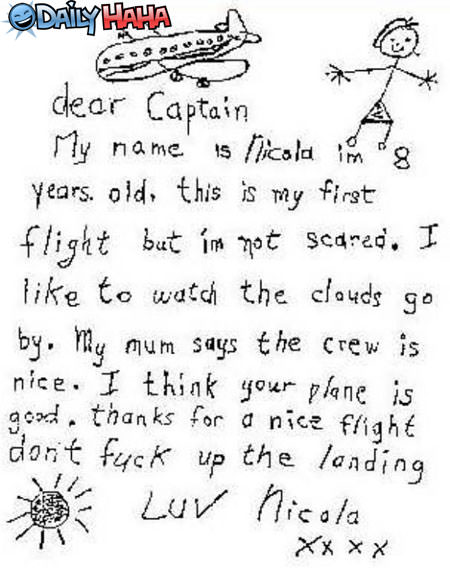 DAILY HAHA
dear Captain
My name is Nicola im 8
years. old, this is my first
flight but im not scared. I
like to watch the clouds go
by. My mum says the crew is
nice. I think your plane is
good. thanks for a nice flight
don't fuck up the landing
LUV Nicola
XXXX